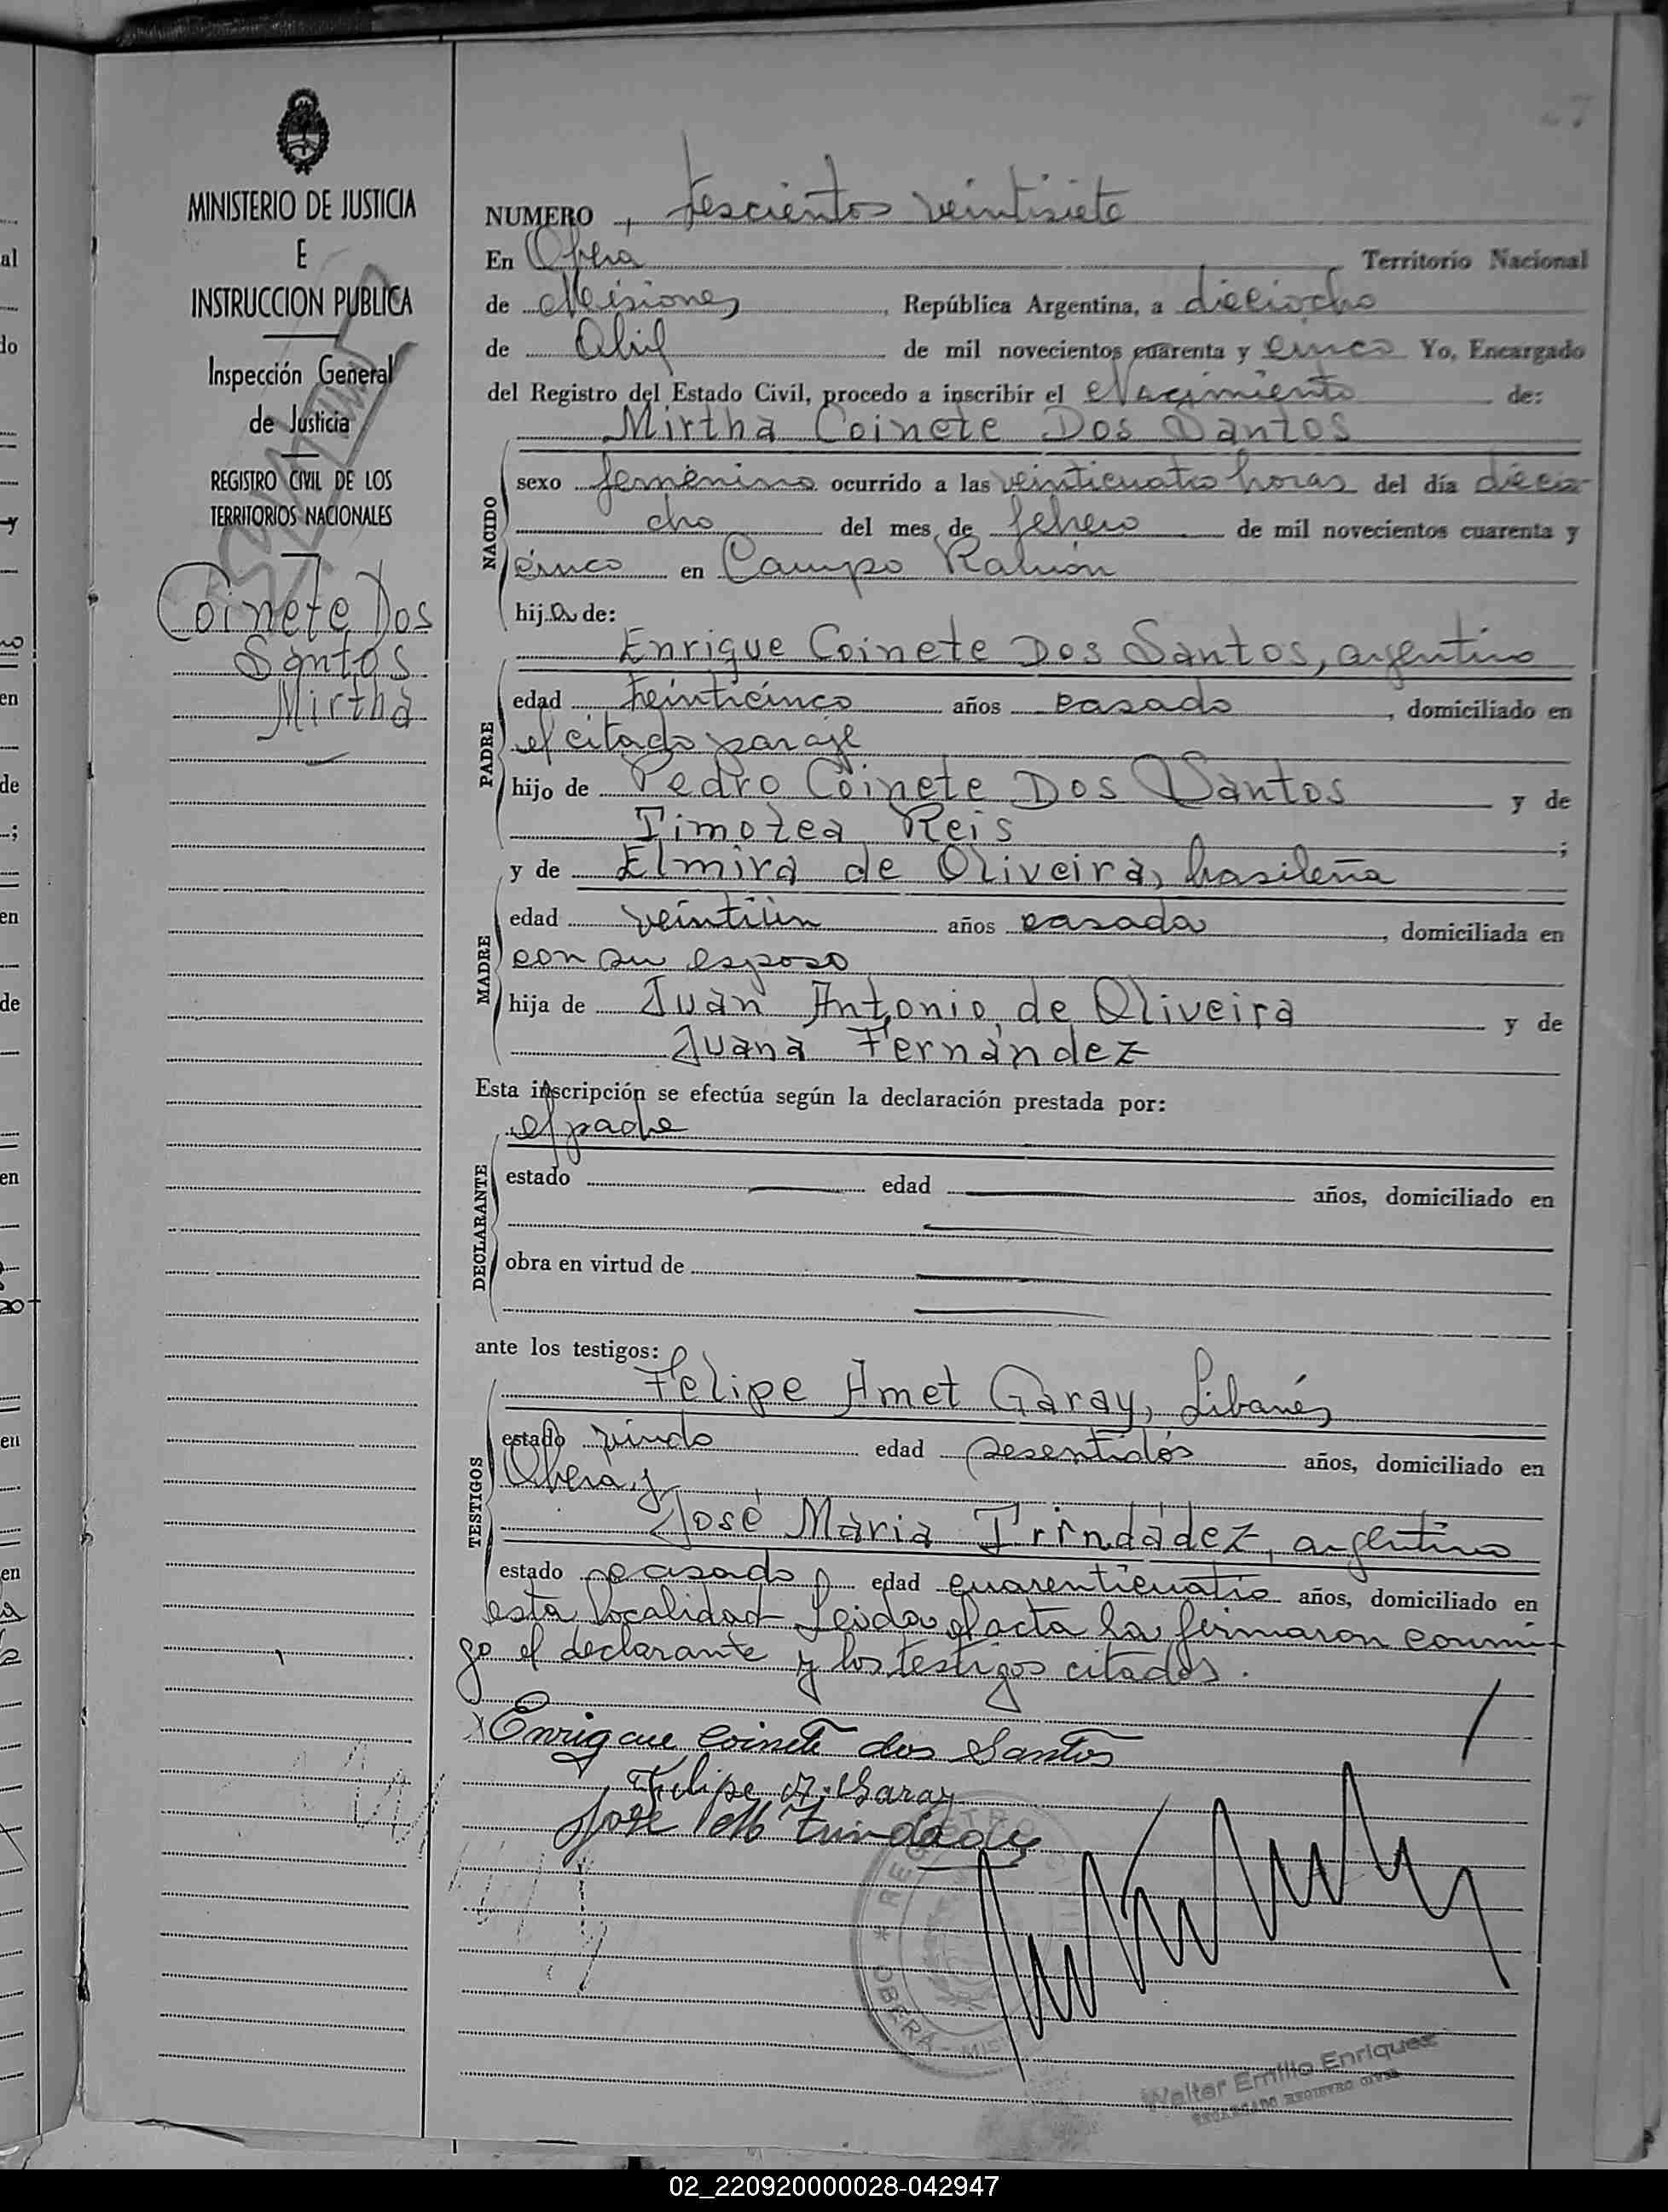 MINISTERIO DE JUSTICIA
E
INSTRUCCION PUBLICA
Inspección General
de Justicia
REGISTRO CIVIL DE LOS
TERRITORIOS NACIONALES
Coinete Dos
Santos
Mirtha
NUMERO, trescientos veintisiete
En Oberá Territorio Nacional
de Misiones, República Argentina, a dieciocho
de Abril de mil novecientos cuarenta y cinco Yo, Encargado
del Registro del Estado Civil, procedo a inscribir el Nacimiento de:
Mirtha Coinete Dos Santos
NACIDO
sexo femenino ocurrido a las veinticuatro horas del día diecio-
cho del mes de febrero de mil novecientos cuarenta y
cinco en Campo Ramón
hija de:
PADRE
Enrique Coinete Dos Santos, argentino
edad treinticinco años casado, domiciliado en
el citado paraje
hijo de Pedro Coinete Dos Santos y de
Timotea Reis;
y de Elmira de Oliveira, brasileña
MADRE
edad veintiún años casada, domiciliada en
con su esposo
hija de Juan Antonio de Oliveira y de
Juana Fernández
Esta inscripción se efectúa según la declaración prestada por:
DECLARANTE
el padre
estado edad años, domiciliado en
obra en virtud de
ante los testigos:
TESTIGOS
Felipe Amet Garay, Libanés
estado viudo edad sesentidós años, domiciliado en
Oberá y
José María Trindádez, argentino
estado casado edad cuarenticuatro años, domiciliado en
esta localidad Leida el acta la firmaron conmi-
go el declarante y los testigos citados.
Enrique Coinete dos Santos
Felipe A. Garay
Jose M Trindades
REGISTRO CIVIL
OBERÁ - MISIONES
Walter Emilio Enriquez
ENCARGADO REGISTRO CIVIL
02_220920000028-042947